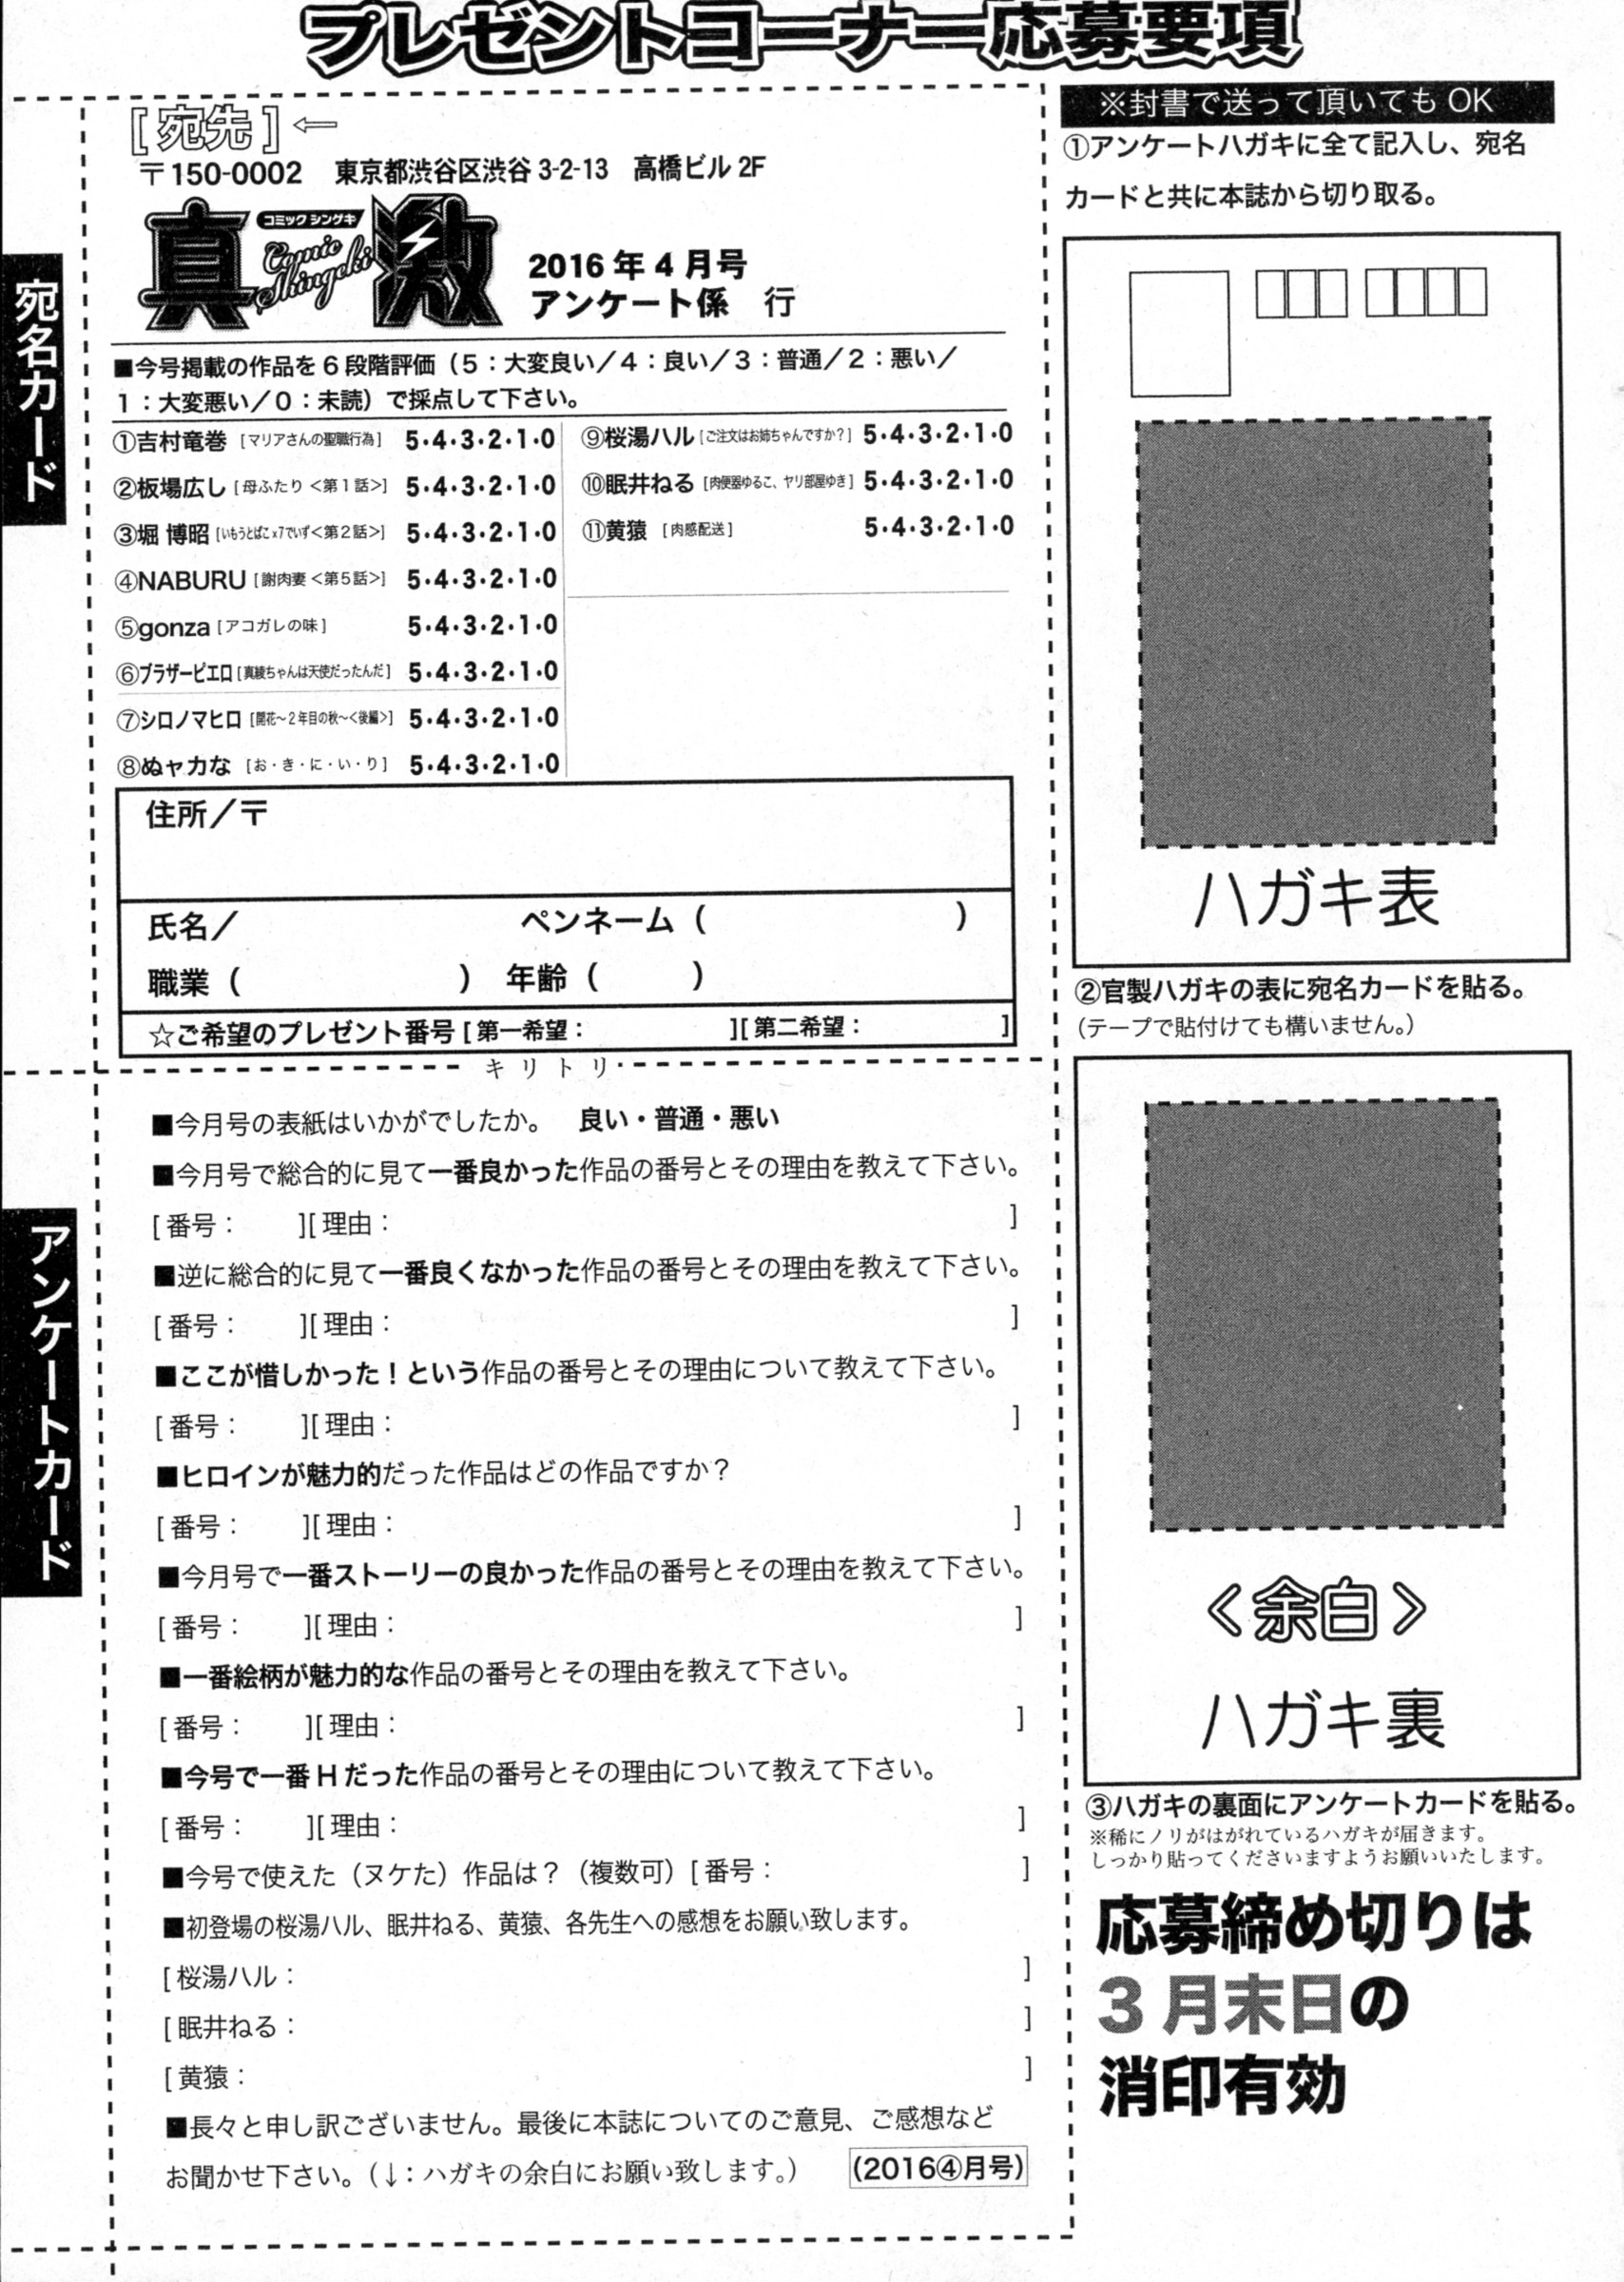 プレゼントコーナー応募要項
[宛先]←
〒150-0002 東京都渋谷区渋谷 3-2-13 高橋ビル 2F
真激
コミック シンゲキ
Comic Shingeki
2016 年 4 月号
アンケート係 行
宛名カード
■今号掲載の作品を 6 段階評価（5：大変良い／4：良い／3：普通／2：悪い／
1：大変悪い／0：未読）で採点して下さい。
①吉村竜巻 [マリアさんの聖職行為] 5・4・3・2・1・0
②板場広し [母ふたり <第１話>] 5・4・3・2・1・0
③堀 博昭 [いもうとばこx7でいず<第２話>] 5・4・3・2・1・0
④NABURU [謝肉妻 <第５話>] 5・4・3・2・1・0
⑤gonza [アコガレの味] 5・4・3・2・1・0
⑥ブラザーピエロ [真綾ちゃんは天使だったんだ] 5・4・3・2・1・0
⑦シロノマヒロ [開花〜２年目の秋〜<後編>] 5・4・3・2・1・0
⑧ぬャカな [お・き・に・い・り] 5・4・3・2・1・0
⑨桜湯ハル [ご注文はお姉ちゃんですか？] 5・4・3・2・1・0
⑩眠井ねる [肉便器ゆるこ、ヤリ部屋ゆき] 5・4・3・2・1・0
⑪黄猿 [肉感配送] 5・4・3・2・1・0
住所／〒
氏名／ ペンネーム（ ）
職業（ ） 年齢（ ）
☆ご希望のプレゼント番号 [ 第一希望： ][ 第二希望： ]
キリトリ
アンケートカード
■今月号の表紙はいかがでしたか。 良い・普通・悪い
■今月号で総合的に見て一番良かった作品の番号とその理由を教えて下さい。
[ 番号： ][ 理由： ]
■逆に総合的に見て一番良くなかった作品の番号とその理由を教えて下さい。
[ 番号： ][ 理由： ]
■ここが惜しかった！という作品の番号とその理由について教えて下さい。
[ 番号： ][ 理由： ]
■ヒロインが魅力的だった作品はどの作品ですか？
[ 番号： ][ 理由： ]
■今月号で一番ストーリーの良かった作品の番号とその理由を教えて下さい。
[ 番号： ][ 理由： ]
■一番絵柄が魅力的な作品の番号とその理由を教えて下さい。
[ 番号： ][ 理由： ]
■今号で一番 H だった作品の番号とその理由について教えて下さい。
[ 番号： ][ 理由： ]
■今号で使えた（ヌケた）作品は？（複数可）[ 番号： ]
■初登場の桜湯ハル、眠井ねる、黄猿、各先生への感想をお願い致します。
[ 桜湯ハル： ]
[ 眠井ねる： ]
[ 黄猿： ]
■長々と申し訳ございません。最後に本誌についてのご意見、ご感想など
お聞かせ下さい。（↓：ハガキの余白にお願い致します。） （2016④月号）
※封書で送って頂いてもOK
①アンケートハガキに全て記入し、宛名
カードと共に本誌から切り取る。
ハガキ表
②官製ハガキの表に宛名カードを貼る。
（テープで貼付けても構いません。）
＜余白＞
ハガキ裏
③ハガキの裏面にアンケートカードを貼る。
※稀にノリがはがれているハガキが届きます。
しっかり貼ってくださいますようお願いいたします。
応募締め切りは
3 月末日の
消印有効